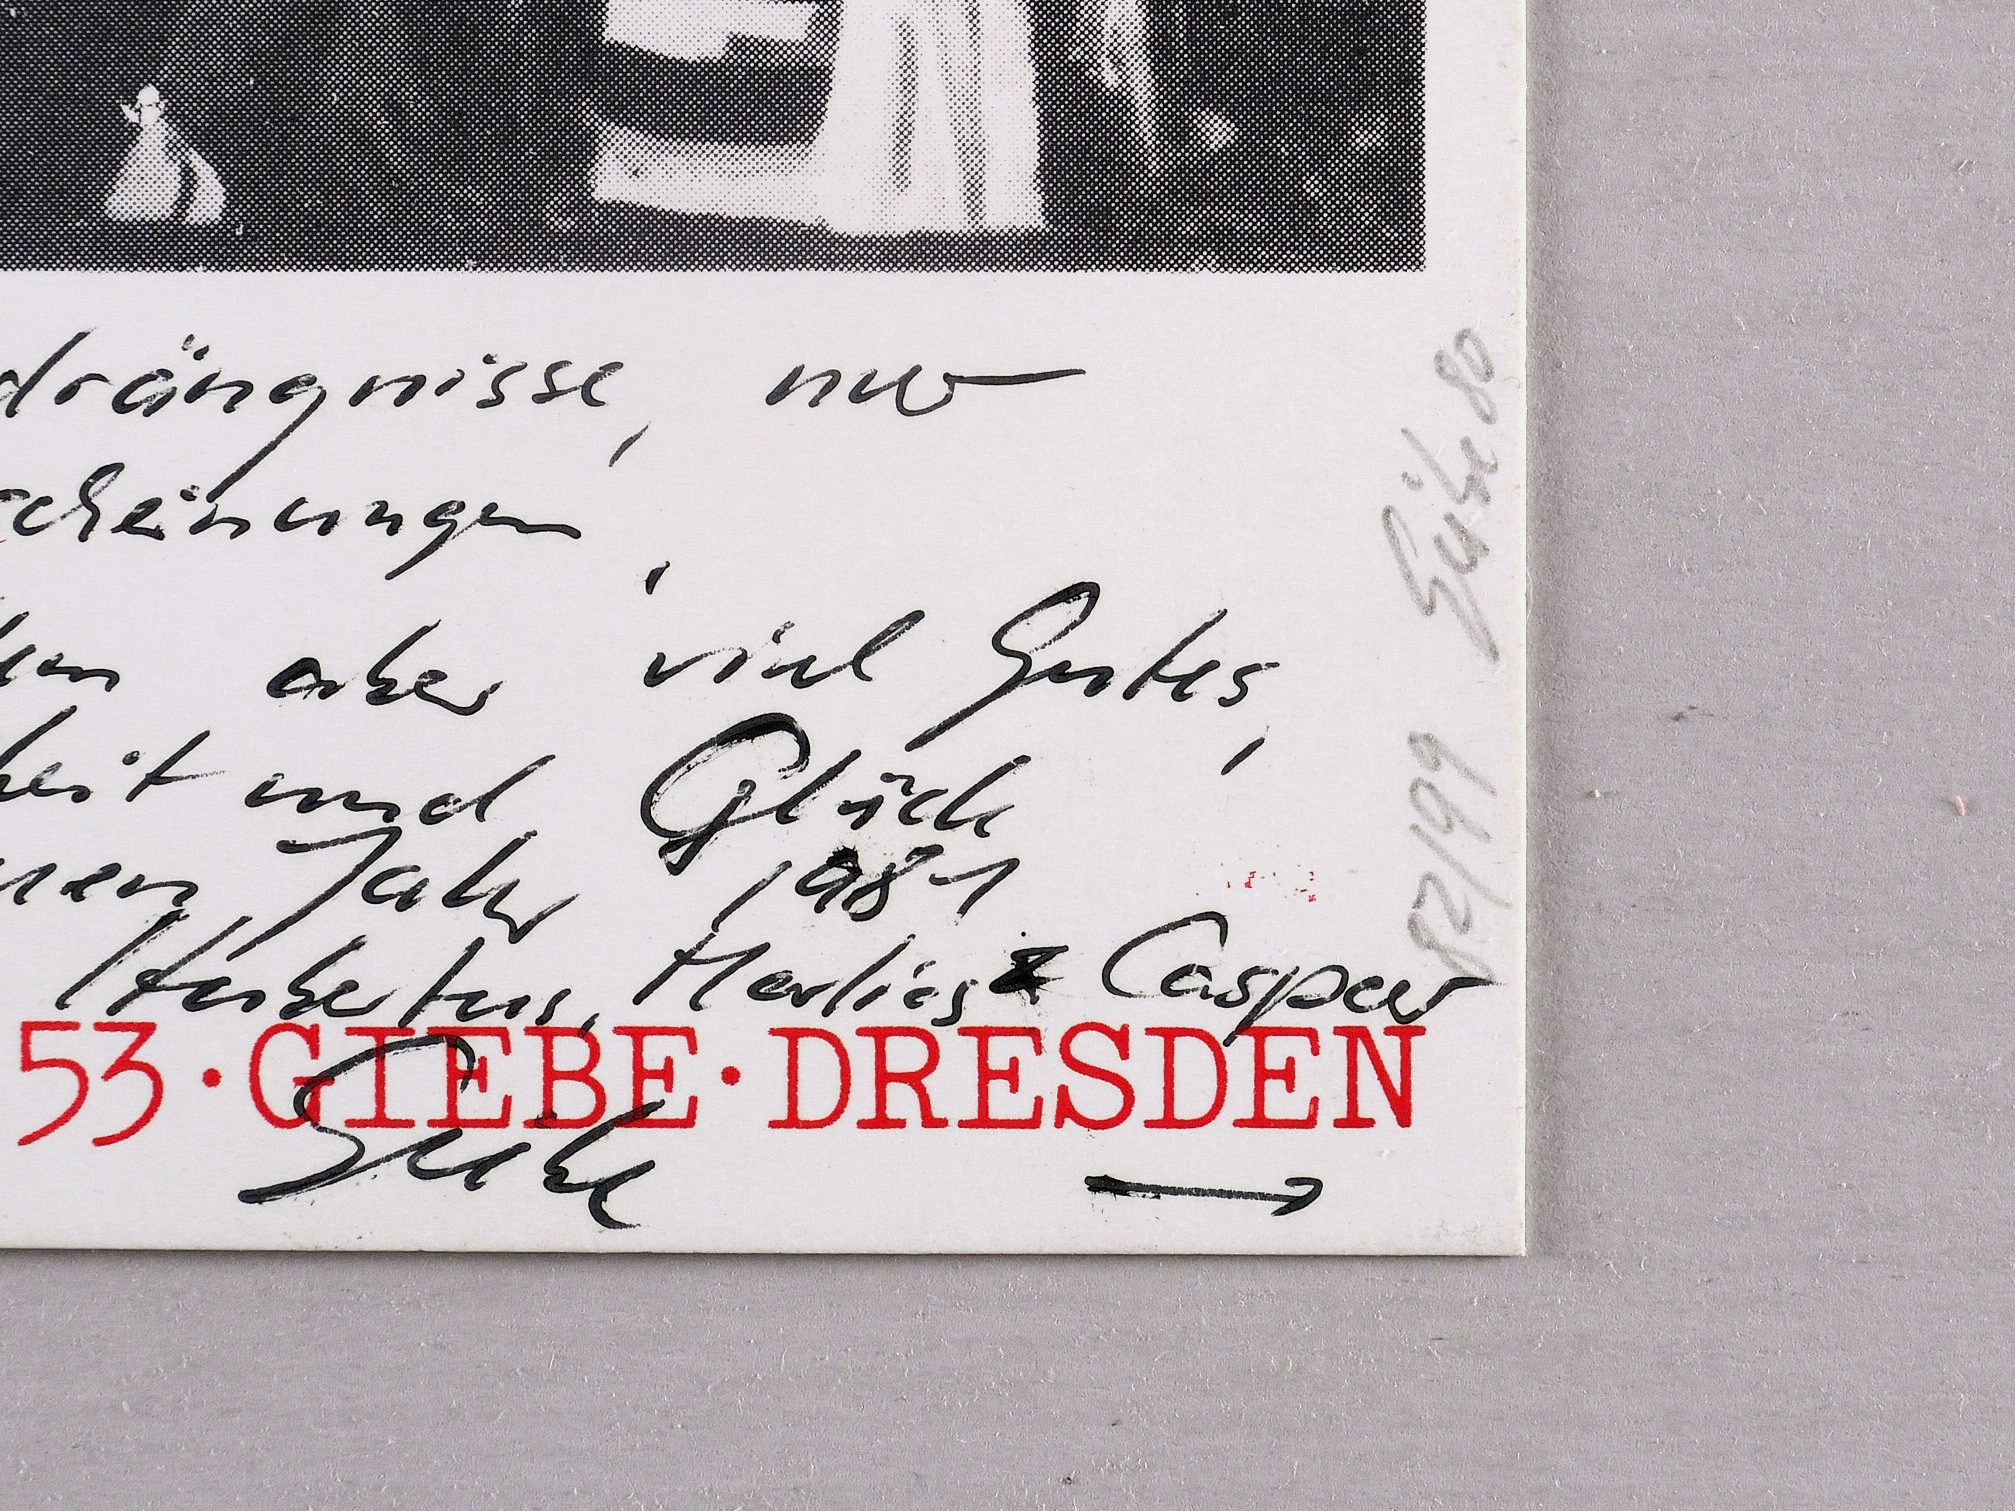 drängnisse, nur
scheinungen,
aber viel Gutes,
heit und Glück
nen Jahr 1981
Hubertus, Marlies & Caspar
53·GIEBE·DRESDEN
Giebe
→
Giebe 80
82/99